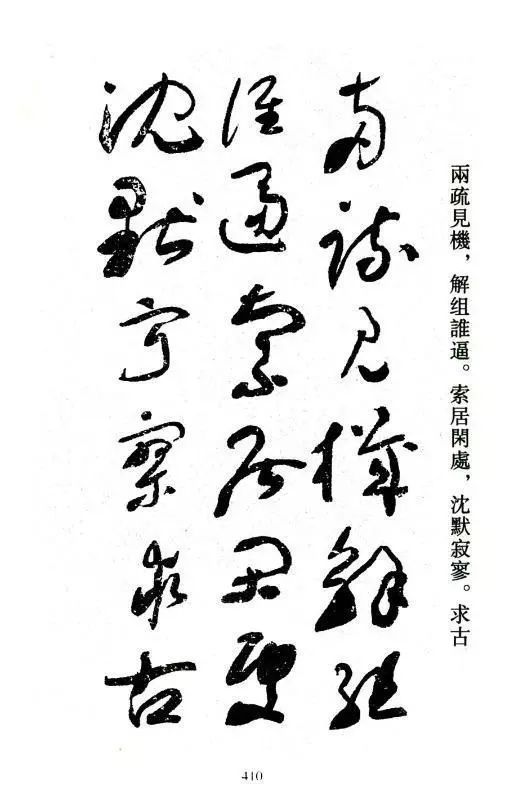 兩疏見機，解组誰逼。索居閑處，沈默寂寥。求古
兩疏見機解組
誰逼索居閑處
沈默寂寥求古
410